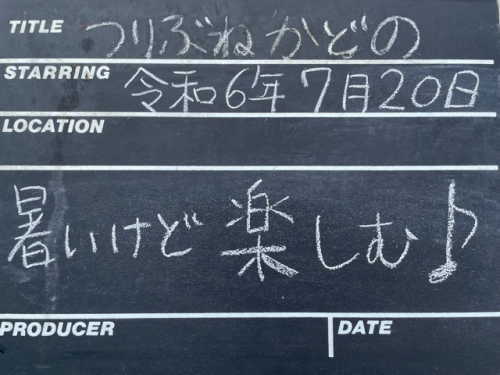 TITLE つりぶねかどの
STARRING 令和6年7月20日
LOCATION
暑いけど楽しむ♪
PRODUCER DATE